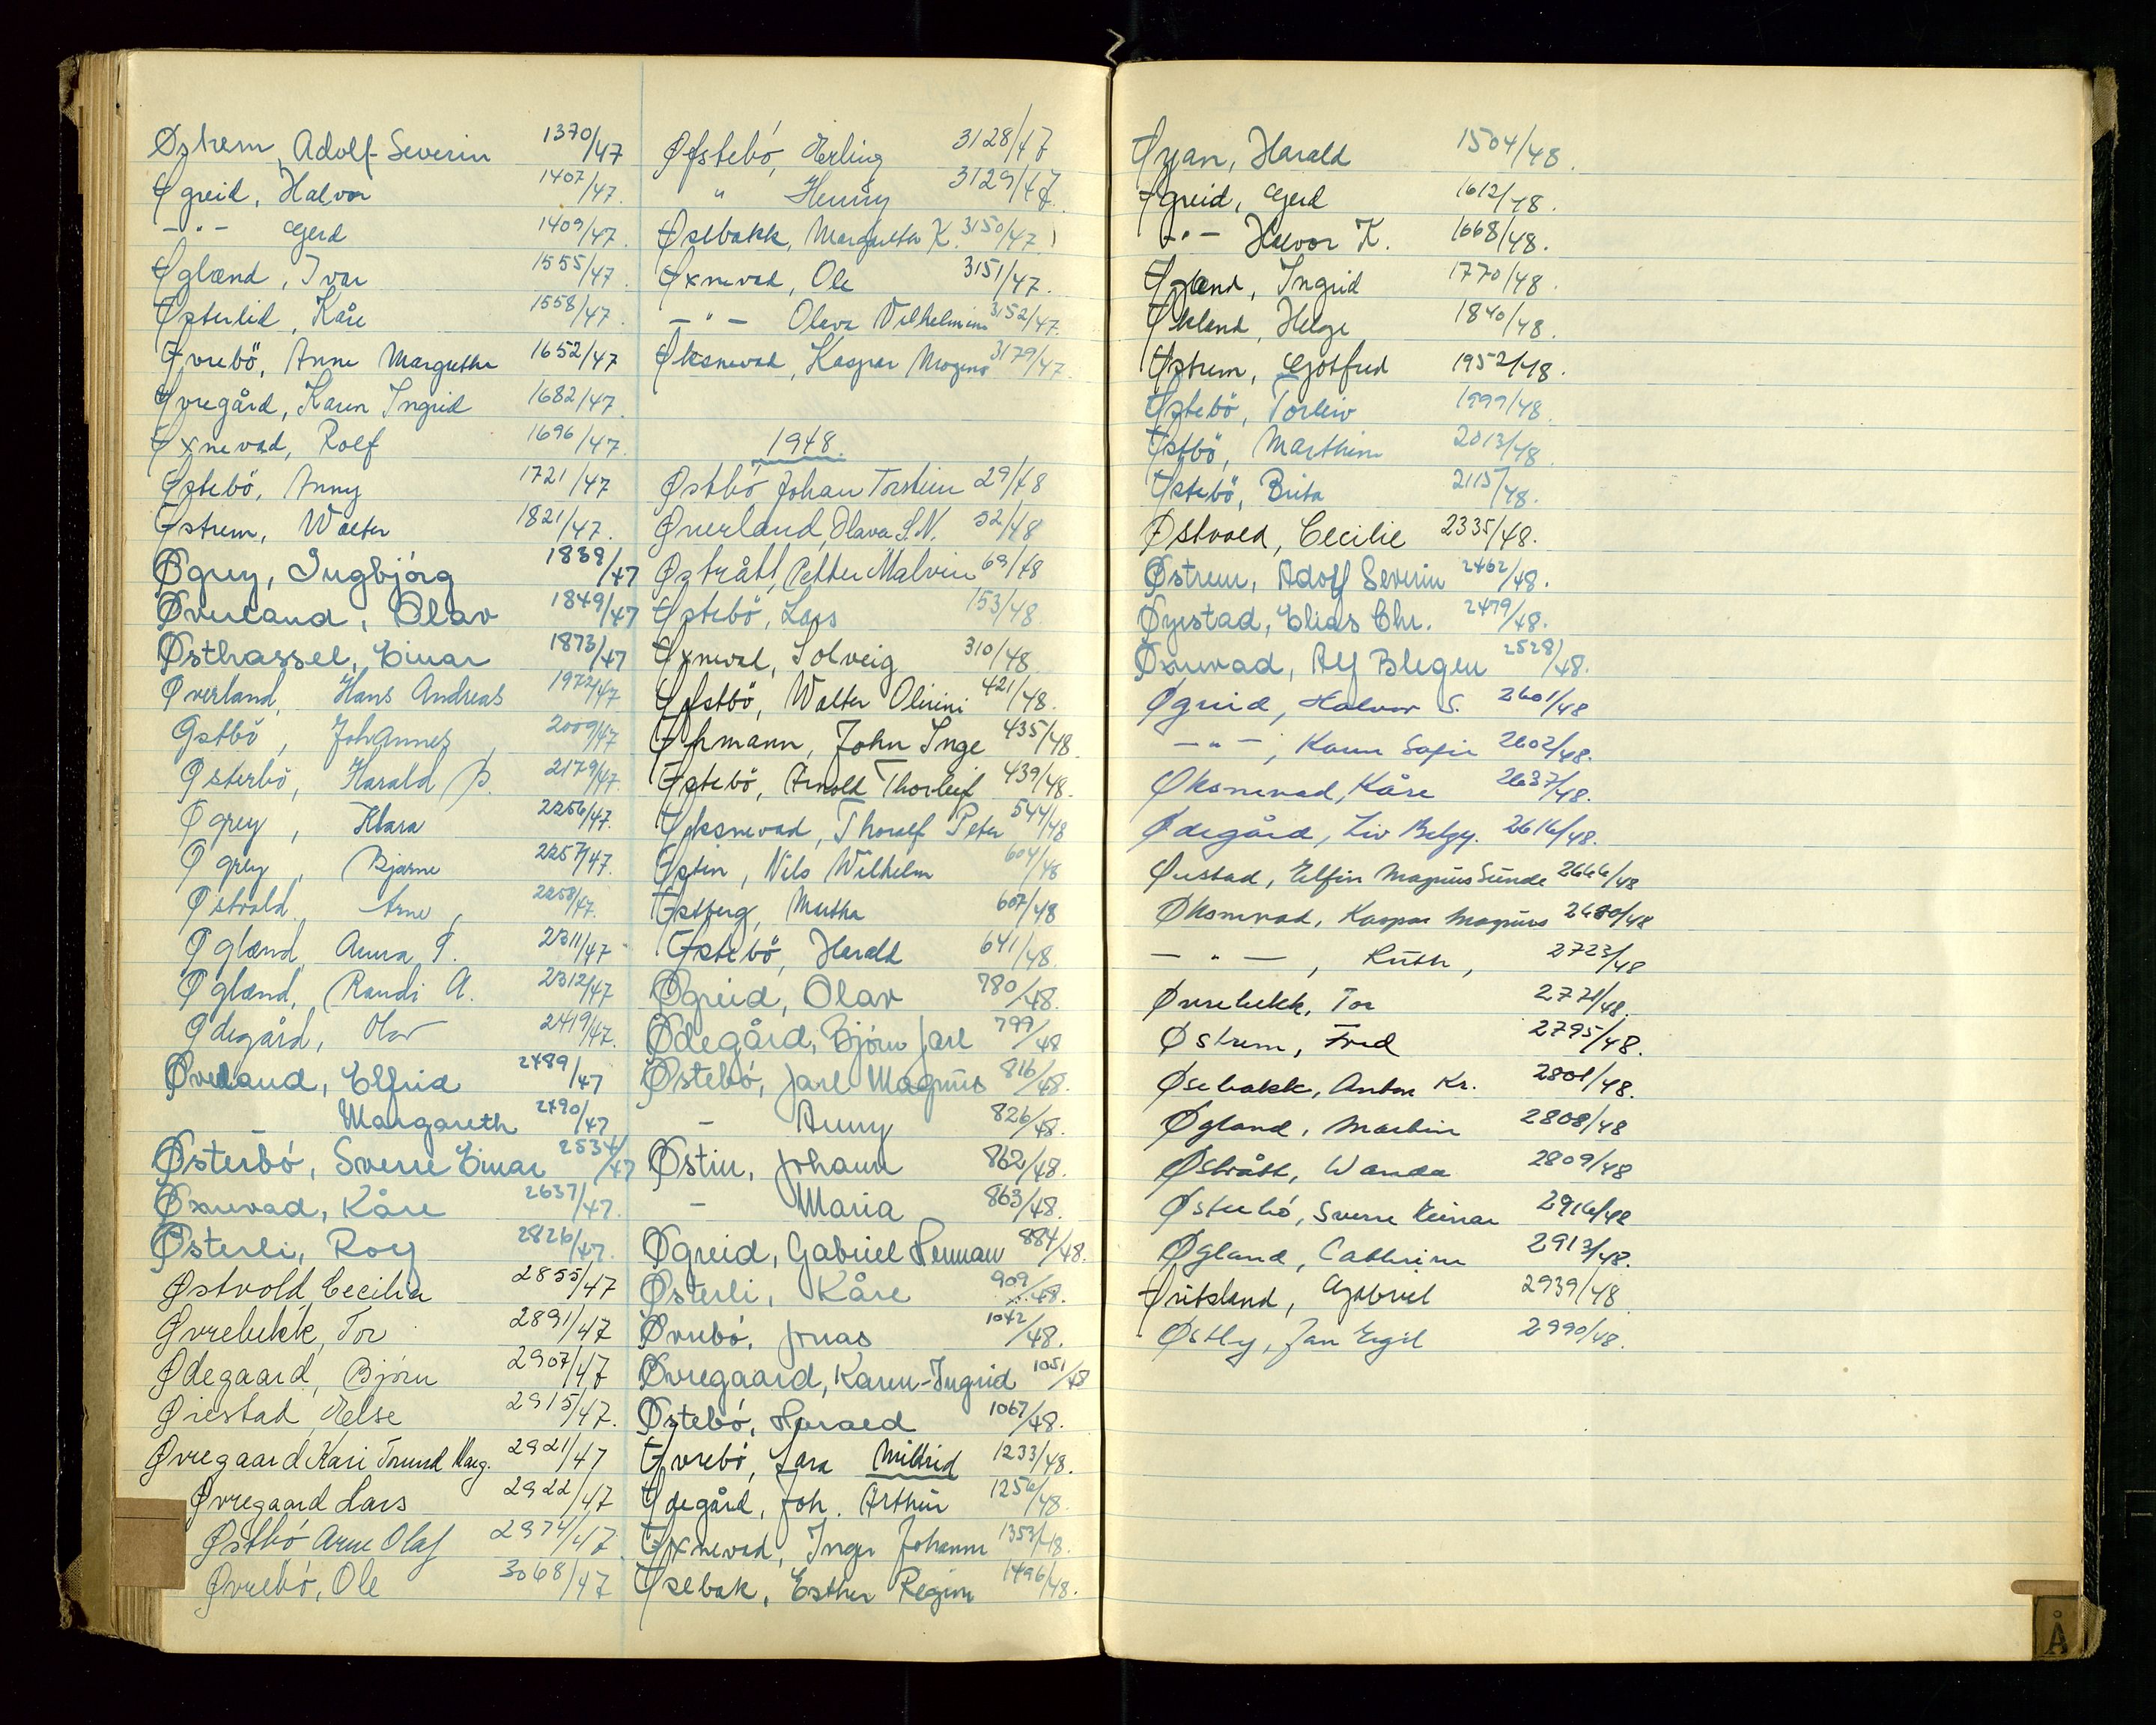 Østrem, Adolf-Severin 1370/47
Øgreid, Halvor 1407/47.
-"- Gerd 1409/47.
Øgland, Ivar 1555/47.
Østerlid, Kåre 1558/47.
Øvrebö, Anne Margrethe 1652/47
Øvregård, Karen Ingrid 1682/47.
Øxnevad, Rolf 1696/47.
Østebö, Anny 1721/47
Østrem, Walter 1821/47.
Øgrey, Ingbjørg 1838/47
Øverland, Olav 1849/47
Østhassel, Einar 1873/47
Øverland, Hans Andreas 1972/47
Østbö, Johannes, 2009/47
Østerbö, Harald P. 2179/47.
Øgrey, Klara 2256/47.
Øgrey, Bjarne 2257/47.
Østvold, Arne, 2258/47.
Øgland, Anna 2311/47.
Øgland, Randi A. 2312/47
Ødegård, Olav 2419/47.
Øverland, Elfrid 2489/47
- Margareth 2490/47
Østerbó, Sverre Einar 2534/47
Øxnevad, Kåre 2637/47.
Østerli, Roy 2826/47.
Østvold Cecilia 2855/47
Øvrebekk, Tor 2891/47
Ødegaard, Bjórn 2907/47
Øiestad, Else 2915/47.
Øvregaard Kari Torund Marg. 2921/47
Øvregaard Lars 2922/47
Østbó Arne Olaf 2974/47.
Øvrebó, Ole 3068/47
Øfstebó, Erling 3128/47
" Henny 3129/47.
Øsebakk, Margrethe K. 3150/47
Øxnevad, Ole 3151/47.
-"- Olava Vilhelmine 3152/47.
Øksnevad, Kaspar Mogens 3179/47.
1948.
Østbó, Johan Torstein 29/48
Øverland, Olava S.N. 52/48
Østrått, Petter Malvin 69/48
Østebö, Lars 153/48.
Øxnevad, Solveig 310/48
Øfstbö, Walter Olinini 421/48.
Øhmann, John Inge 435/48
Østebö, Arnold Thorleif 439/48.
Øksnevad, Thoralf Peter 544/48
Østin, Nils Wilhelm 604/48
Østberg, Martha 607/48
Østebö, Harald 641/48.
Øgreid, Olav 780/48.
Ødegård, Bjórn Jarl 799/48
Østebó, Jarl Magnus 816/48.
- Anny 826/48.
Østin, Johann 862/48.
- Maria 863/48.
Øgreid, Gabriel Herman 884/48.
Østerli, Kåre 909/48.
Øvrebó, Jonas 1042/48.
Øvregaard, Karen-Ingrid 1051/48
Østebó, Harald 1067/48.
Øvrebó, Lara Mildrid 1233/48.
Ødegård, Joh. Arthur 1256/48
Øxnevad, Inger Johanne 1353/48.
Øsebak, Esther Regine 1496/48.
Øyan, Harald 1504/48.
Øgreid, Gerd 1612/48.
-"- Halvor K. 1668/48.
Øgland, Ingrid 1770/48.
Økland, Helge 1840/48.
Østrem, Gotfred 1952/48.
Østebö, Torleiv 1999/48.
Østbö, Marthin 2013/48.
Østebö, Brita 2115/48.
Østvold, Cecilie 2335/48.
Østrem, Adolf Severin 2462/48.
Øyestad, Elias Chr. 2479/48.
Øxnevad, Alf Blegen 2528/48.
Øgreid, Halvor S. 2601/48
-"-, Karen Sofie 2602/48.
Øksnevad, Kåre 2637/48.
Ødegård, Liv 2616/48.
Øiestad, Elfin Magnus Sunde 2666/48
Øksnevad, Kaspar Magnus 2680/48
-"-, Ruth, 2723/48
Øvrebekk, Tor 2771/48.
Østrem, Fred 2795/48.
Øsebakk, Anton Kr. 2801/48.
Øgland, Martin 2808/48
Østrått, Wanda 2809/48
Østerbó, Sverre Reinar 2916/48
Øgland, Cathrine 2913/48.
Øritsland, Gabriel 2939/48
Østby, Jan Egil 2990/48.
Å